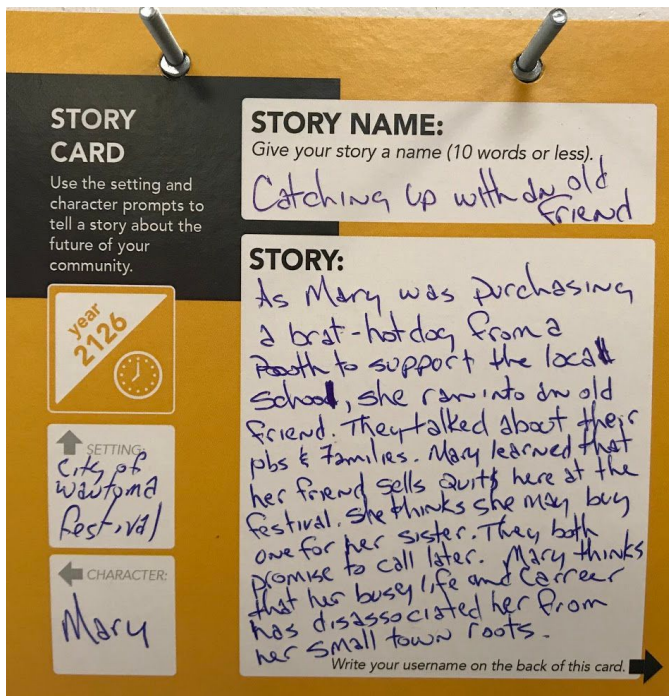 STORY
CARD
Use the setting and
character prompts to
tell a story about the
future of your
community.
year
2126
SETTING:
City of
Wautoma
festival
CHARACTER:
Mary
STORY NAME:
Give your story a name (10 words or less).
Catching up with an old
friend
STORY:
As Mary was purchasing
a brat-hotdog from a
Booth to support the local
school, she ran into an old
friend. They talked about their
jobs & families. Mary learned that
her friend sells Quits here at the
festival. She thinks she may buy
one for her sister. They both
promise to call later. Mary thinks
that her busy life and carreer
has disassociated her from
her small town roots.
Write your username on the back of this card.